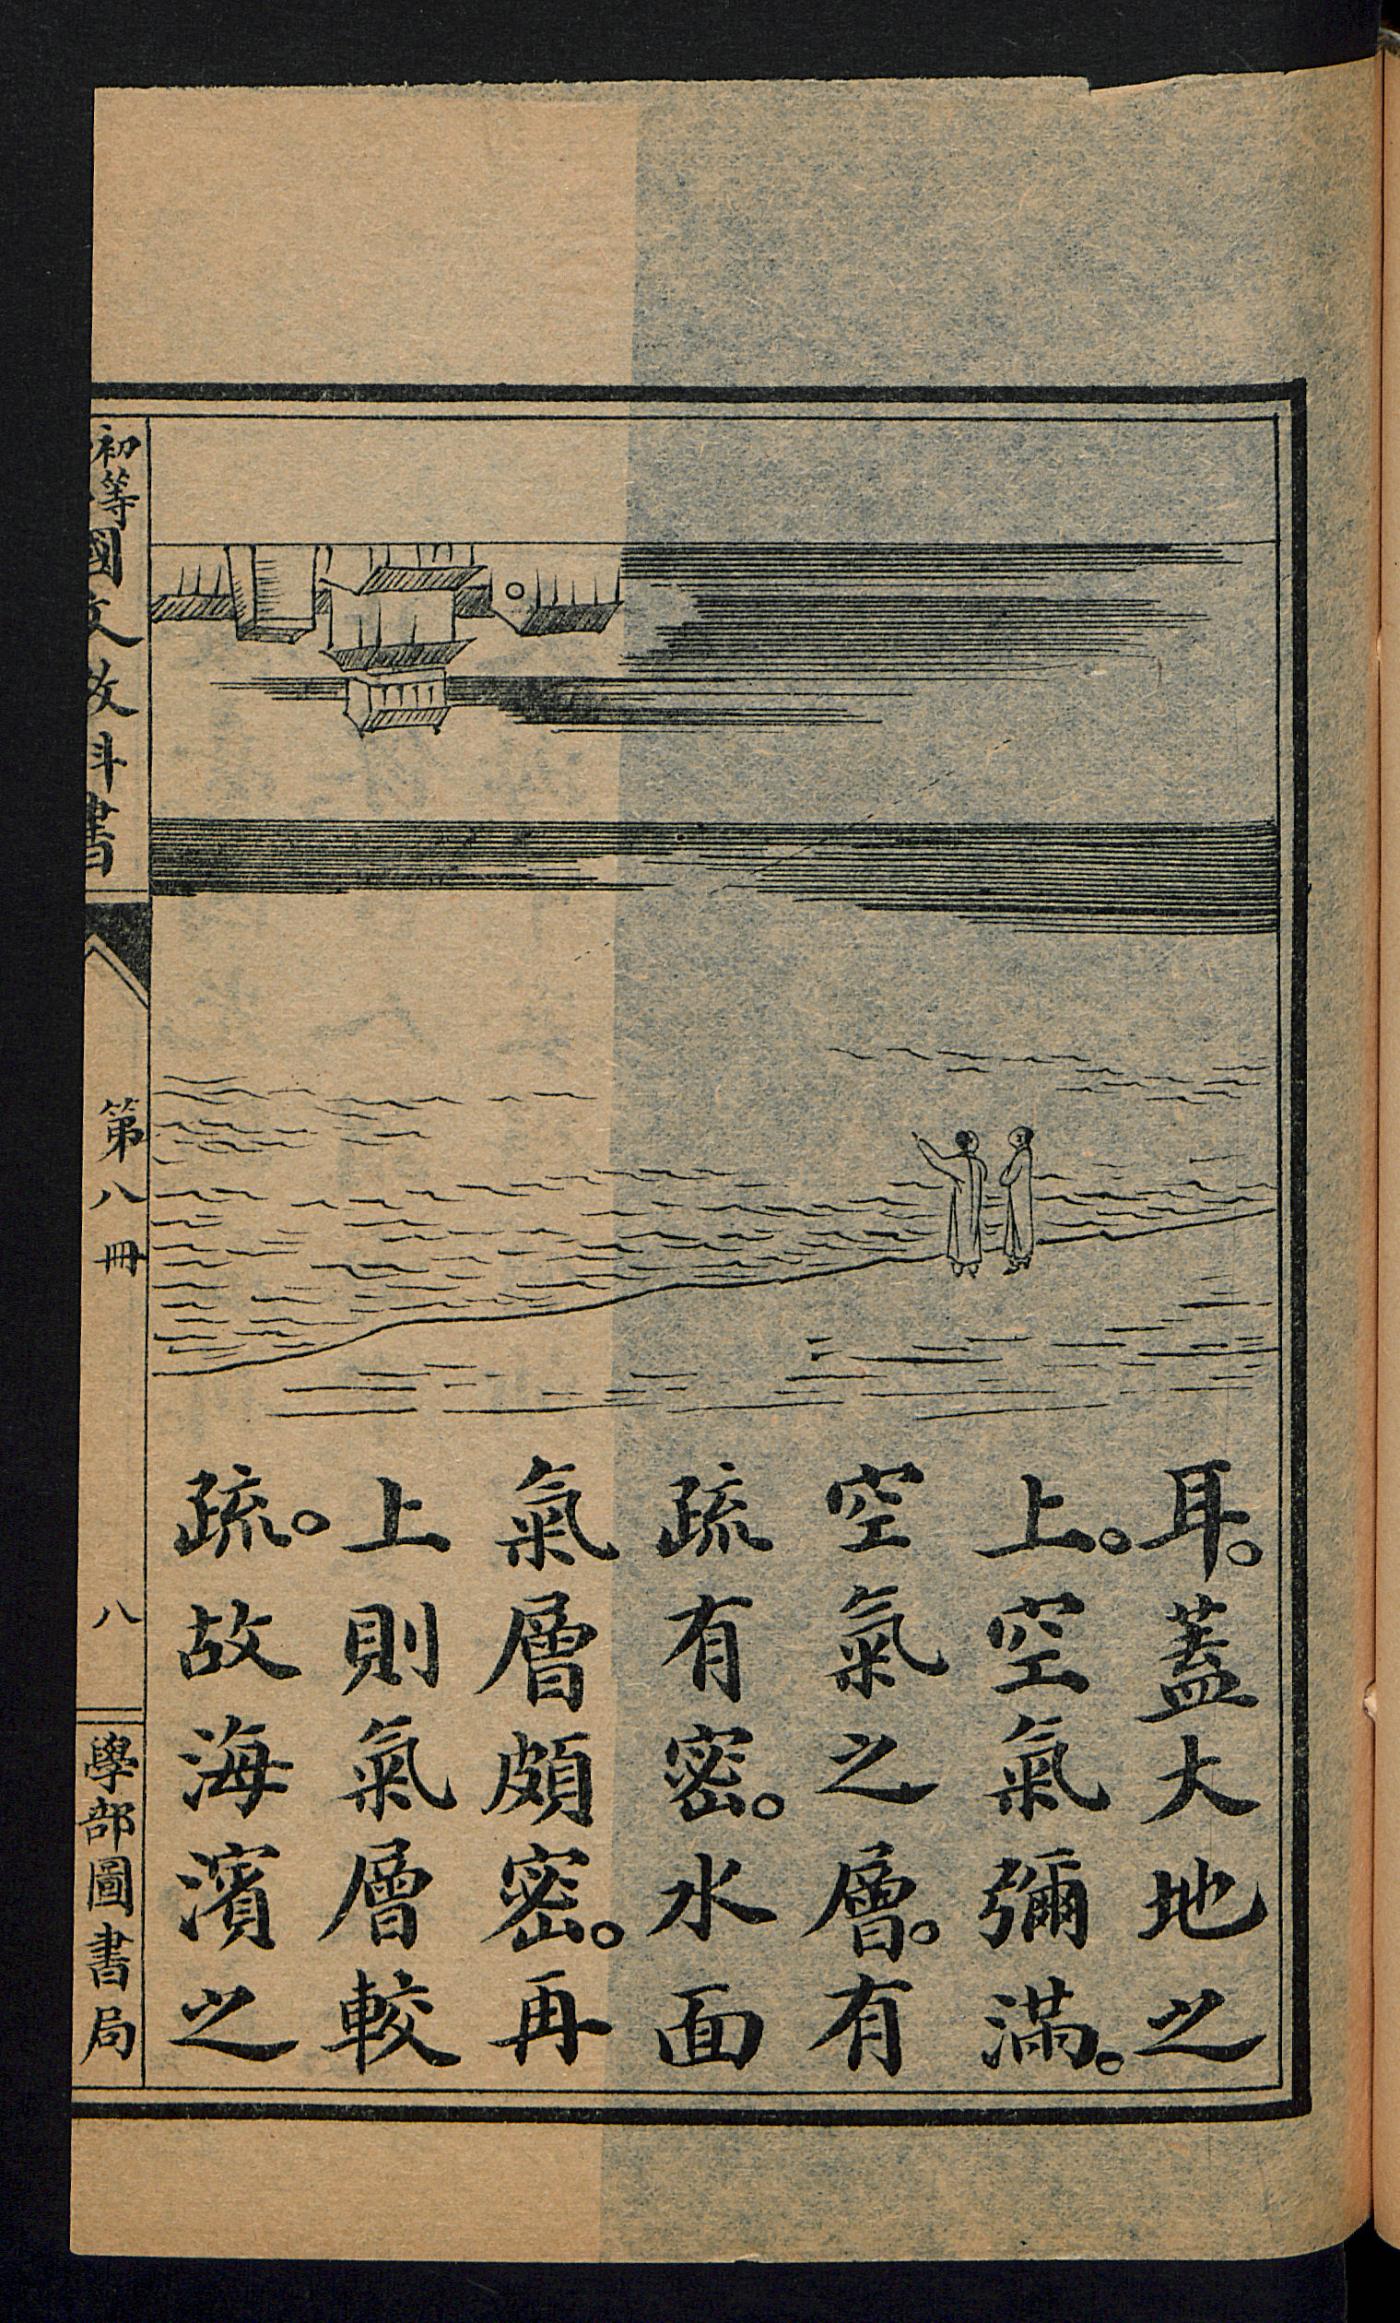 耳。蓋大地之
上。空氣彌滿。
空氣之層。有
疏有密。水面
氣層頗密。再
上則氣層較
疏。故海濱之
初等國文教科書
第八冊
八
學部圖書局